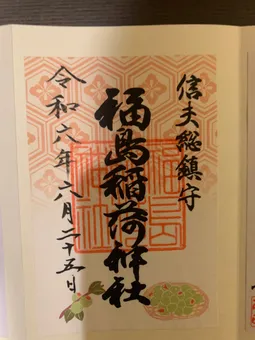 信夫総鎮守
福島稲荷神社
令和六年八月二十五日